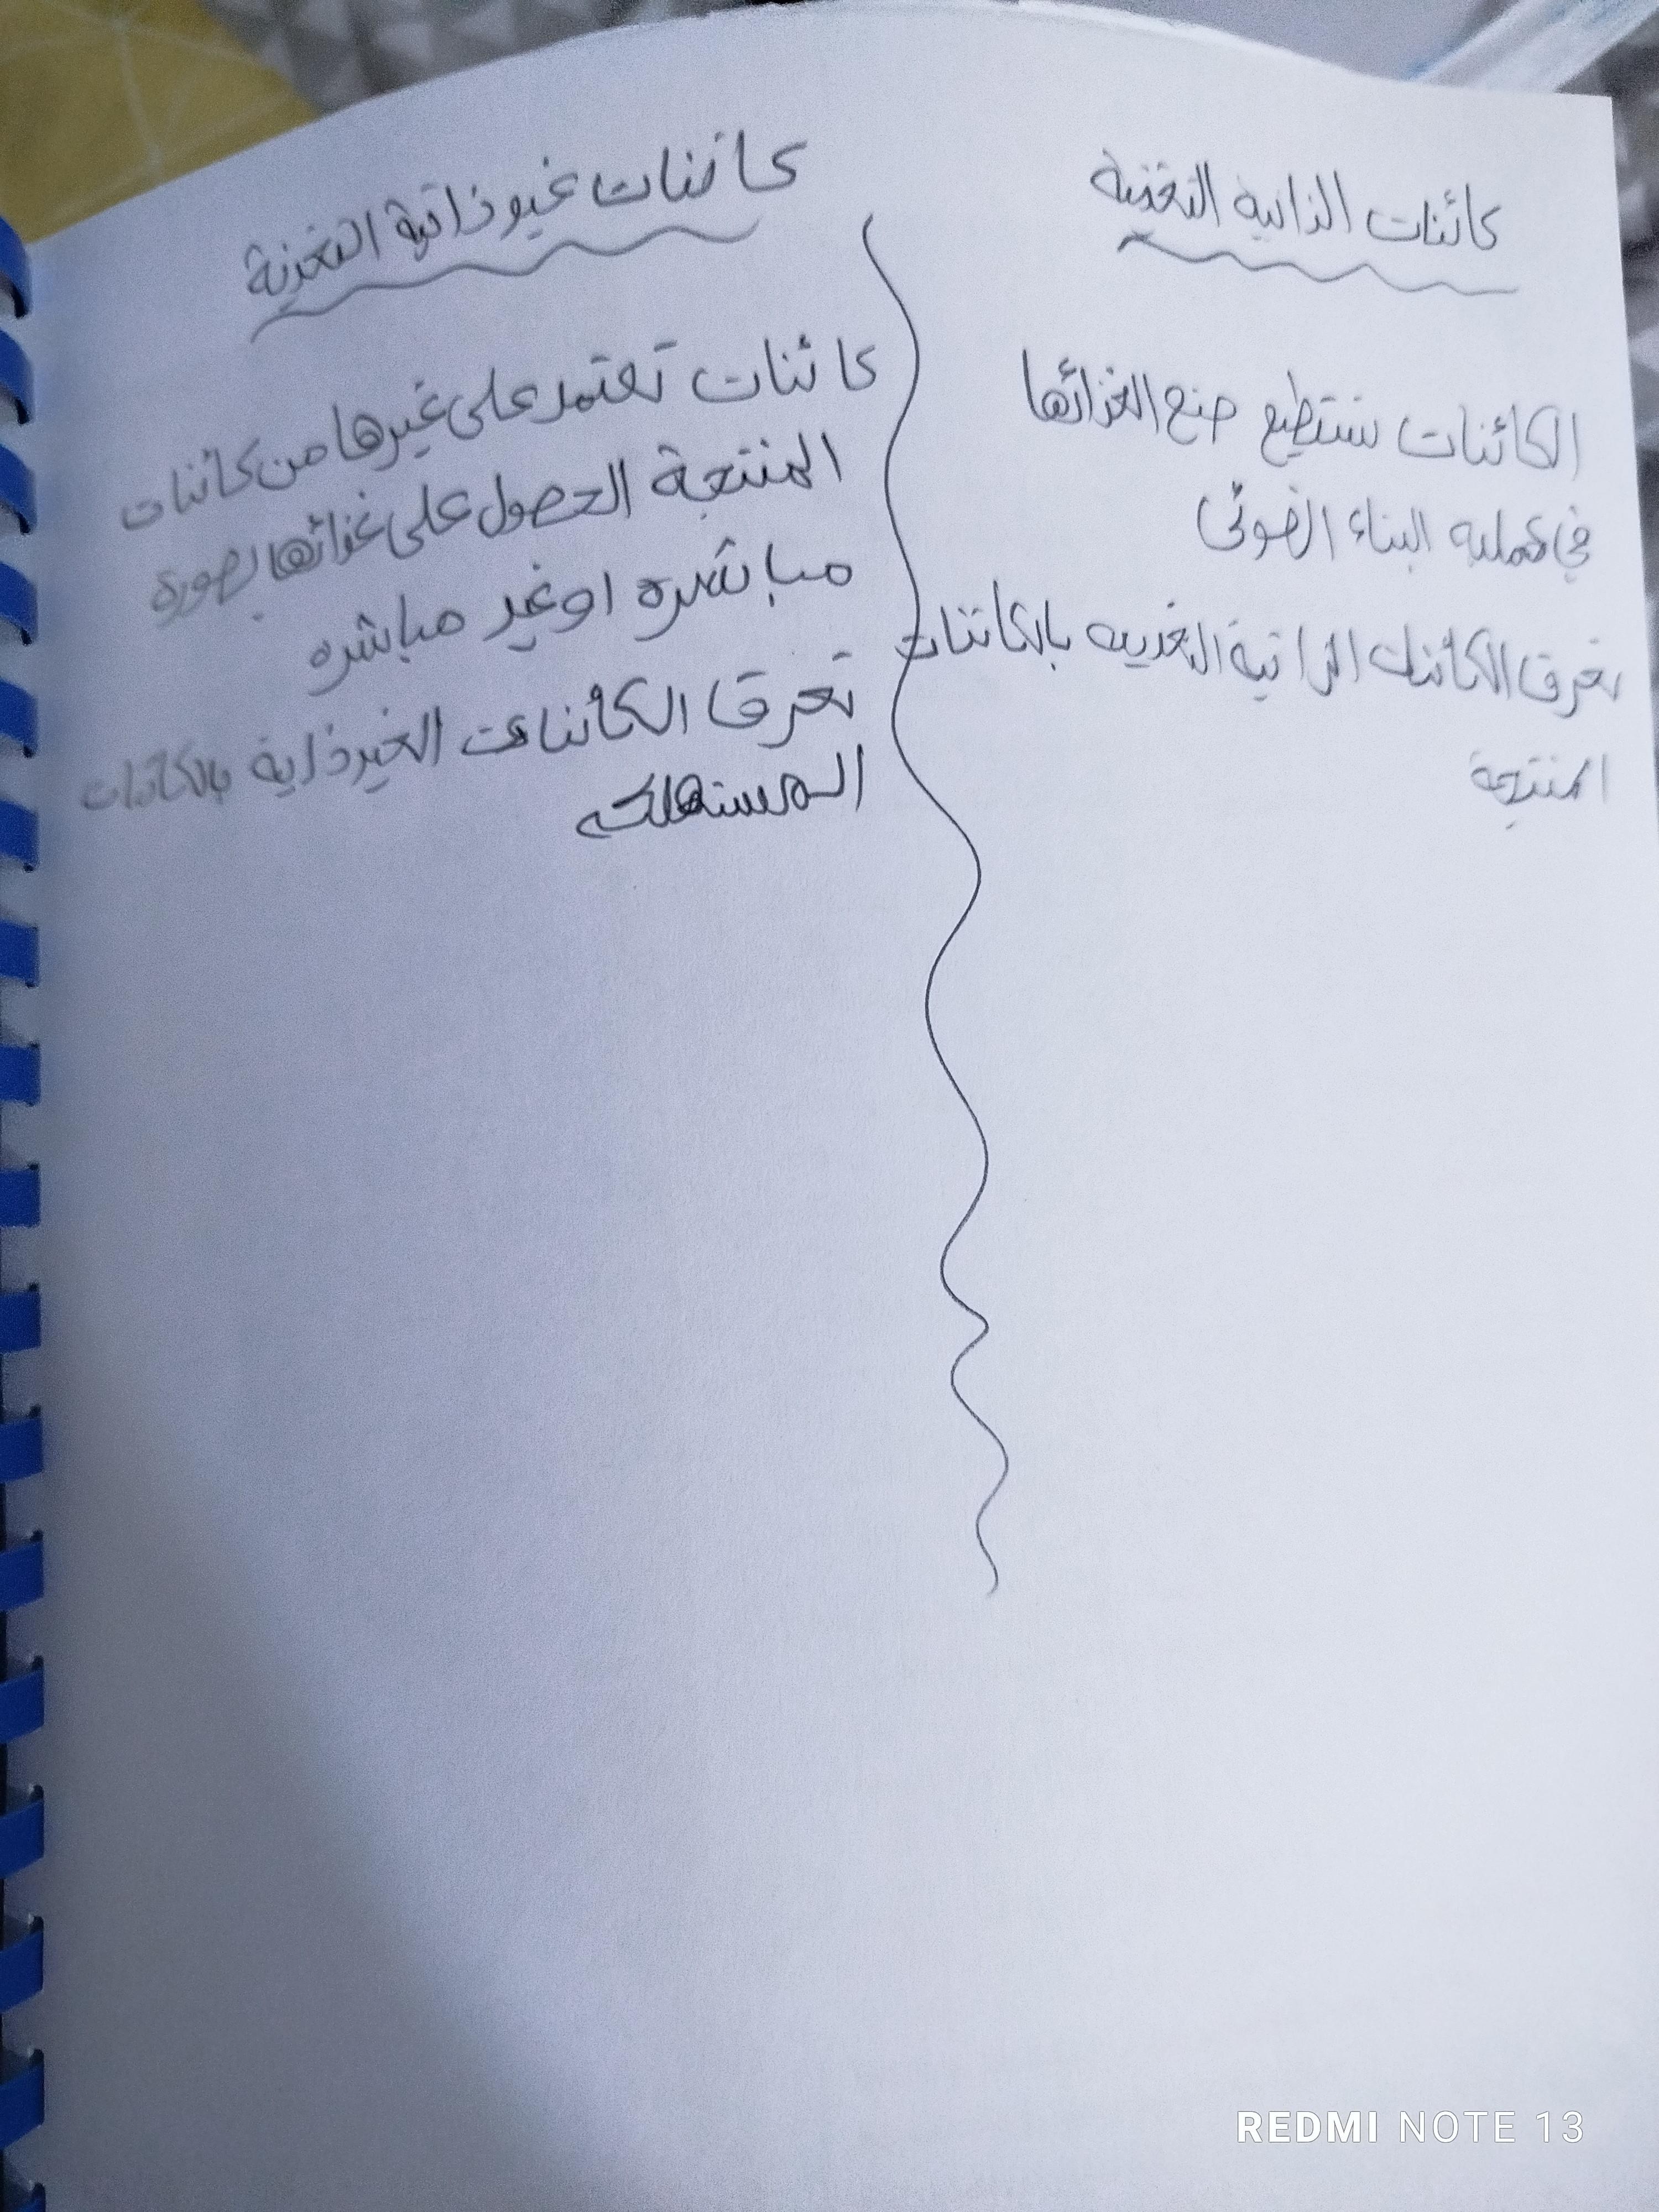 كائنات الذاتية التغذية
الكائنات تستطيع صنع الغذائها
في عملية البناء الضوئى
تعرف الكائنات الذاتية التغذيه بالكائنات
المنتجة
كائنات غير ذاتية التغذية
كائنات تعتمد على غيرها من كائنات
المنتجة الحصول على غذائها بصورة
مباشره او غير مباشره
تعرف الكائنات الغير ذاية بالكائنات
المستهلكه
REDMI NOTE 13